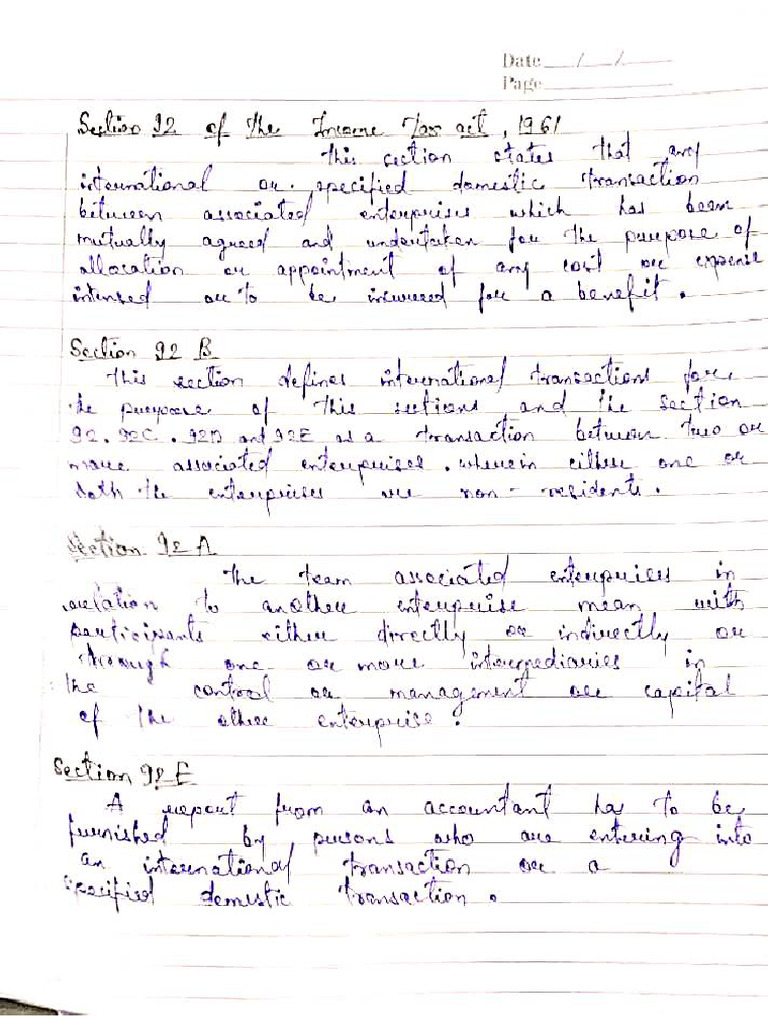 Date __/__/__
Page
Section 92 of the Income Tax act, 1961
This section states that any
international or specified domestic transaction
between associated enterprises which has been
mutually agreed and undertaken for the purpose of
allocation or appointment of any cost or expense
to be incurred for a benefit.
Section 92 B
This section defines international transactions for
the purpose of this sections and the section
92, 92C, 92D and 92E as a transaction between two or
more associated enterprises, wherein either one or
both the enterprises are non-residents.
Section 92 A
The team associated enterprises in
relation to another enterprise mean with
participants either directly or indirectly or
through one or more intermediaries in
the control or management or capital
of the other enterprise.
Section 92 E
A report from an accountant has to be
furnished by persons who are entering into
an international transaction or a
specified domestic transaction.